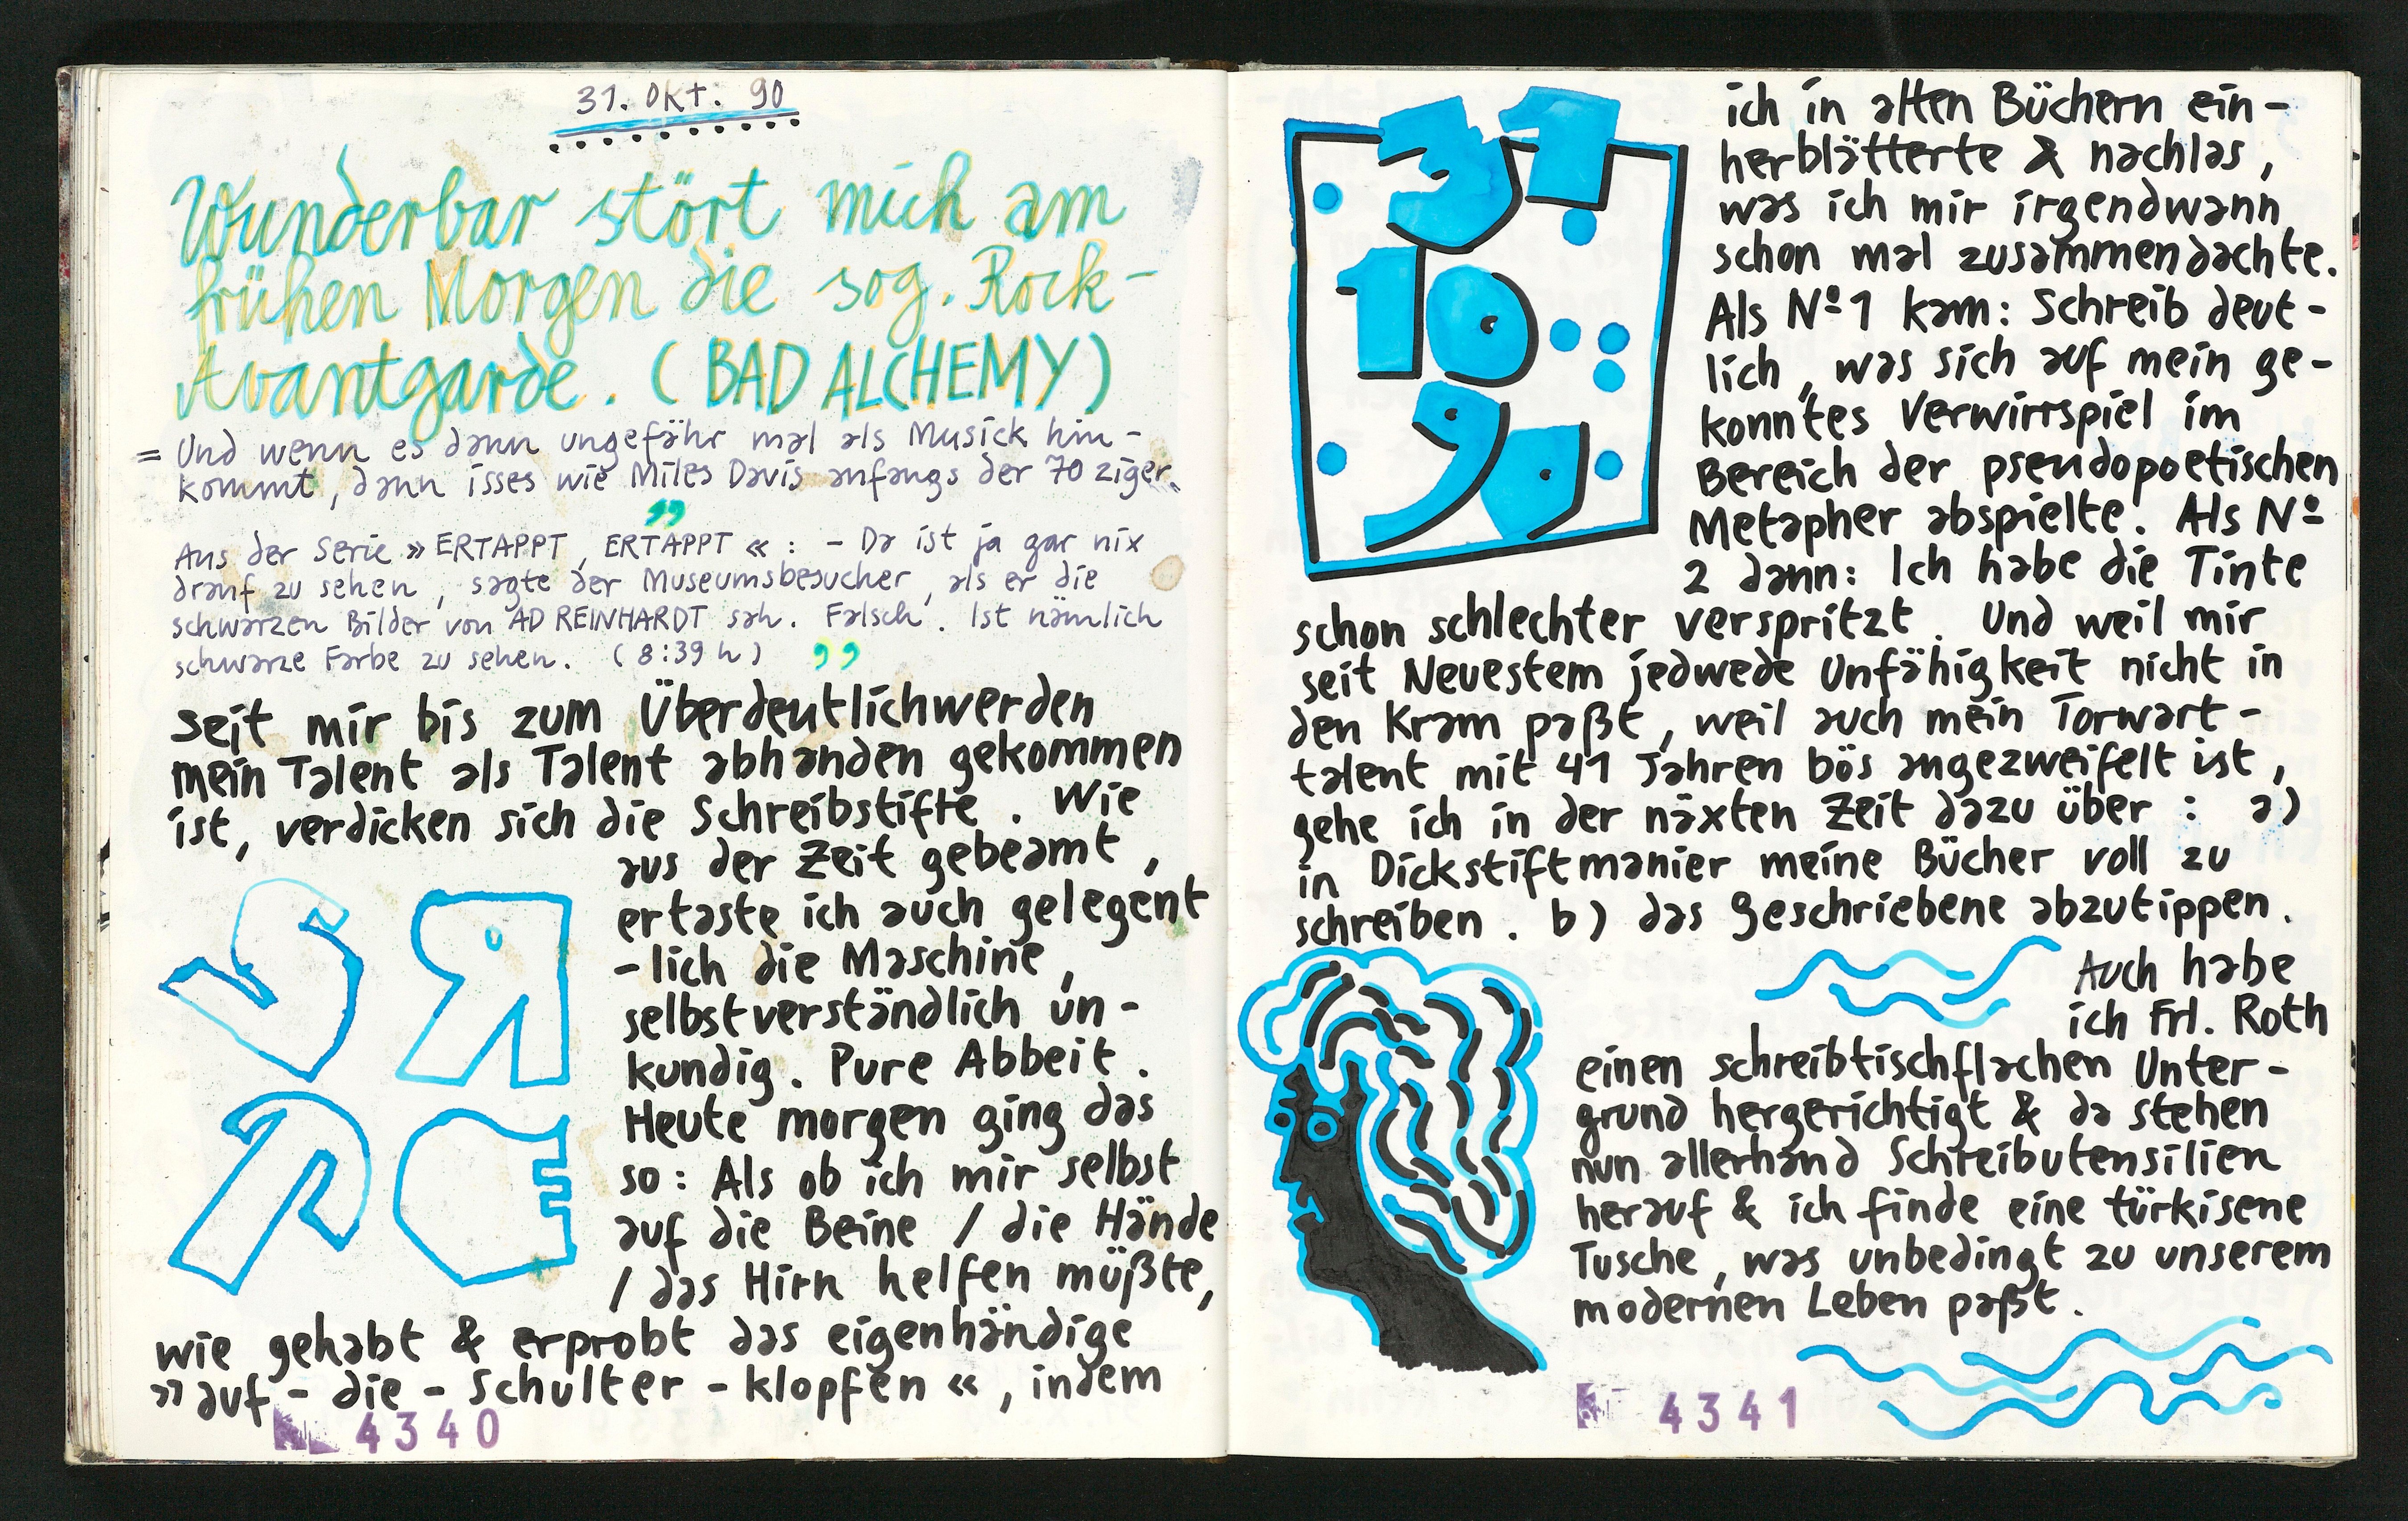 31. OKT. 90
Wunderbar stört mich am
frühen Morgen die sog. Rock-
Avantgarde. (BAD ALCHEMY)
= Und wenn es dann ungefähr mal als Musick hin-
kommt, dann isses wie Miles Davis anfangs der 70ziger.
Aus der Serie » ERTAPPT, ERTAPPT « : - Da ist ja gar nix
drauf zu sehen, sagte der Museumsbesucher, als er die
schwarzen Bilder von AD REINHARDT sah. Falsch. Ist nämlich
schwarze Farbe zu sehen. (8:39 h)
seit mir bis zum Überdeutlichwerden
mein Talent als Talent abhanden gekommen
ist, verdicken sich die Schreibstifte. Wie
aus der Zeit gebeamt,
ertaste ich auch gelegent
-lich die Maschine,
selbstverständlich un-
kundig. Pure Abbeit.
Heute morgen ging das
so: Als ob ich mir selbst
auf die Beine / die Hände
/ das Hirn helfen müßte,
wie gehabt & erprobt das eigenhändige
»auf-die-Schulter-klopfen«, indem
4340
31
10
90
ich in alten Büchern ein-
herblätterte & nachlas,
was ich mir irgendwann
schon mal zusammendachte.
Als Nº 1 kam: Schreib deut-
lich, was sich auf mein ge-
konntes Verwirrspiel im
Bereich der pseudopoetischen
Metapher abspielte. Als Nº
2 dann: Ich habe die Tinte
schon schlechter verspritzt. Und weil mir
seit Neuestem jedwede Unfähigkeit nicht in
den Kram paßt, weil auch mein Torwart-
talent mit 41 Jahren bös angezweifelt ist,
gehe ich in der näxten Zeit dazu über : a)
in Dickstiftmanier meine Bücher voll zu
schreiben. b) das Geschriebene abzutippen.
Auch habe
ich Frl. Roth
einen schreibtischflachen Unter-
grund hergerichtigt & da stehen
nun allerhand Schreibutensilien
herauf & ich finde eine türkisene
Tusche, was unbedingt zu unserem
modernen Leben paßt.
4341